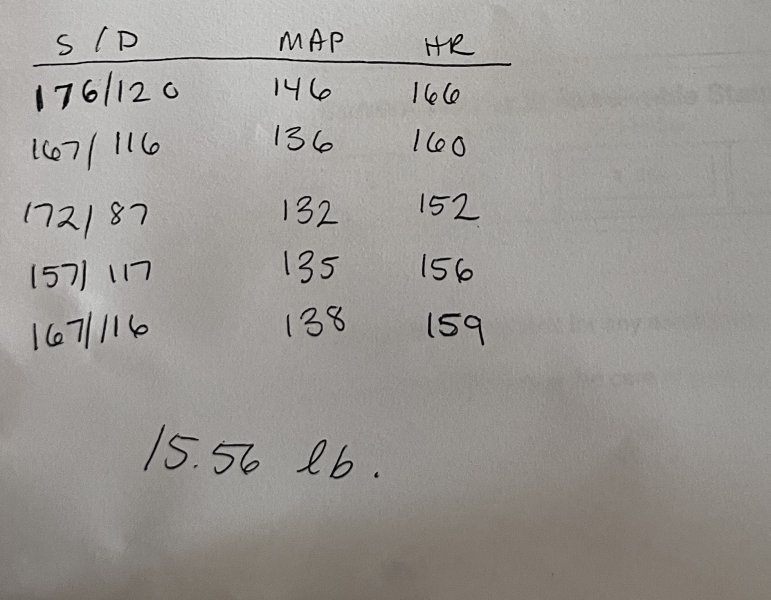 S / D MAP HR
176/120 146 166
167/ 116 136 160
172/ 87 132 152
157/ 117 135 156
167/116 138 159
15.56 lb.